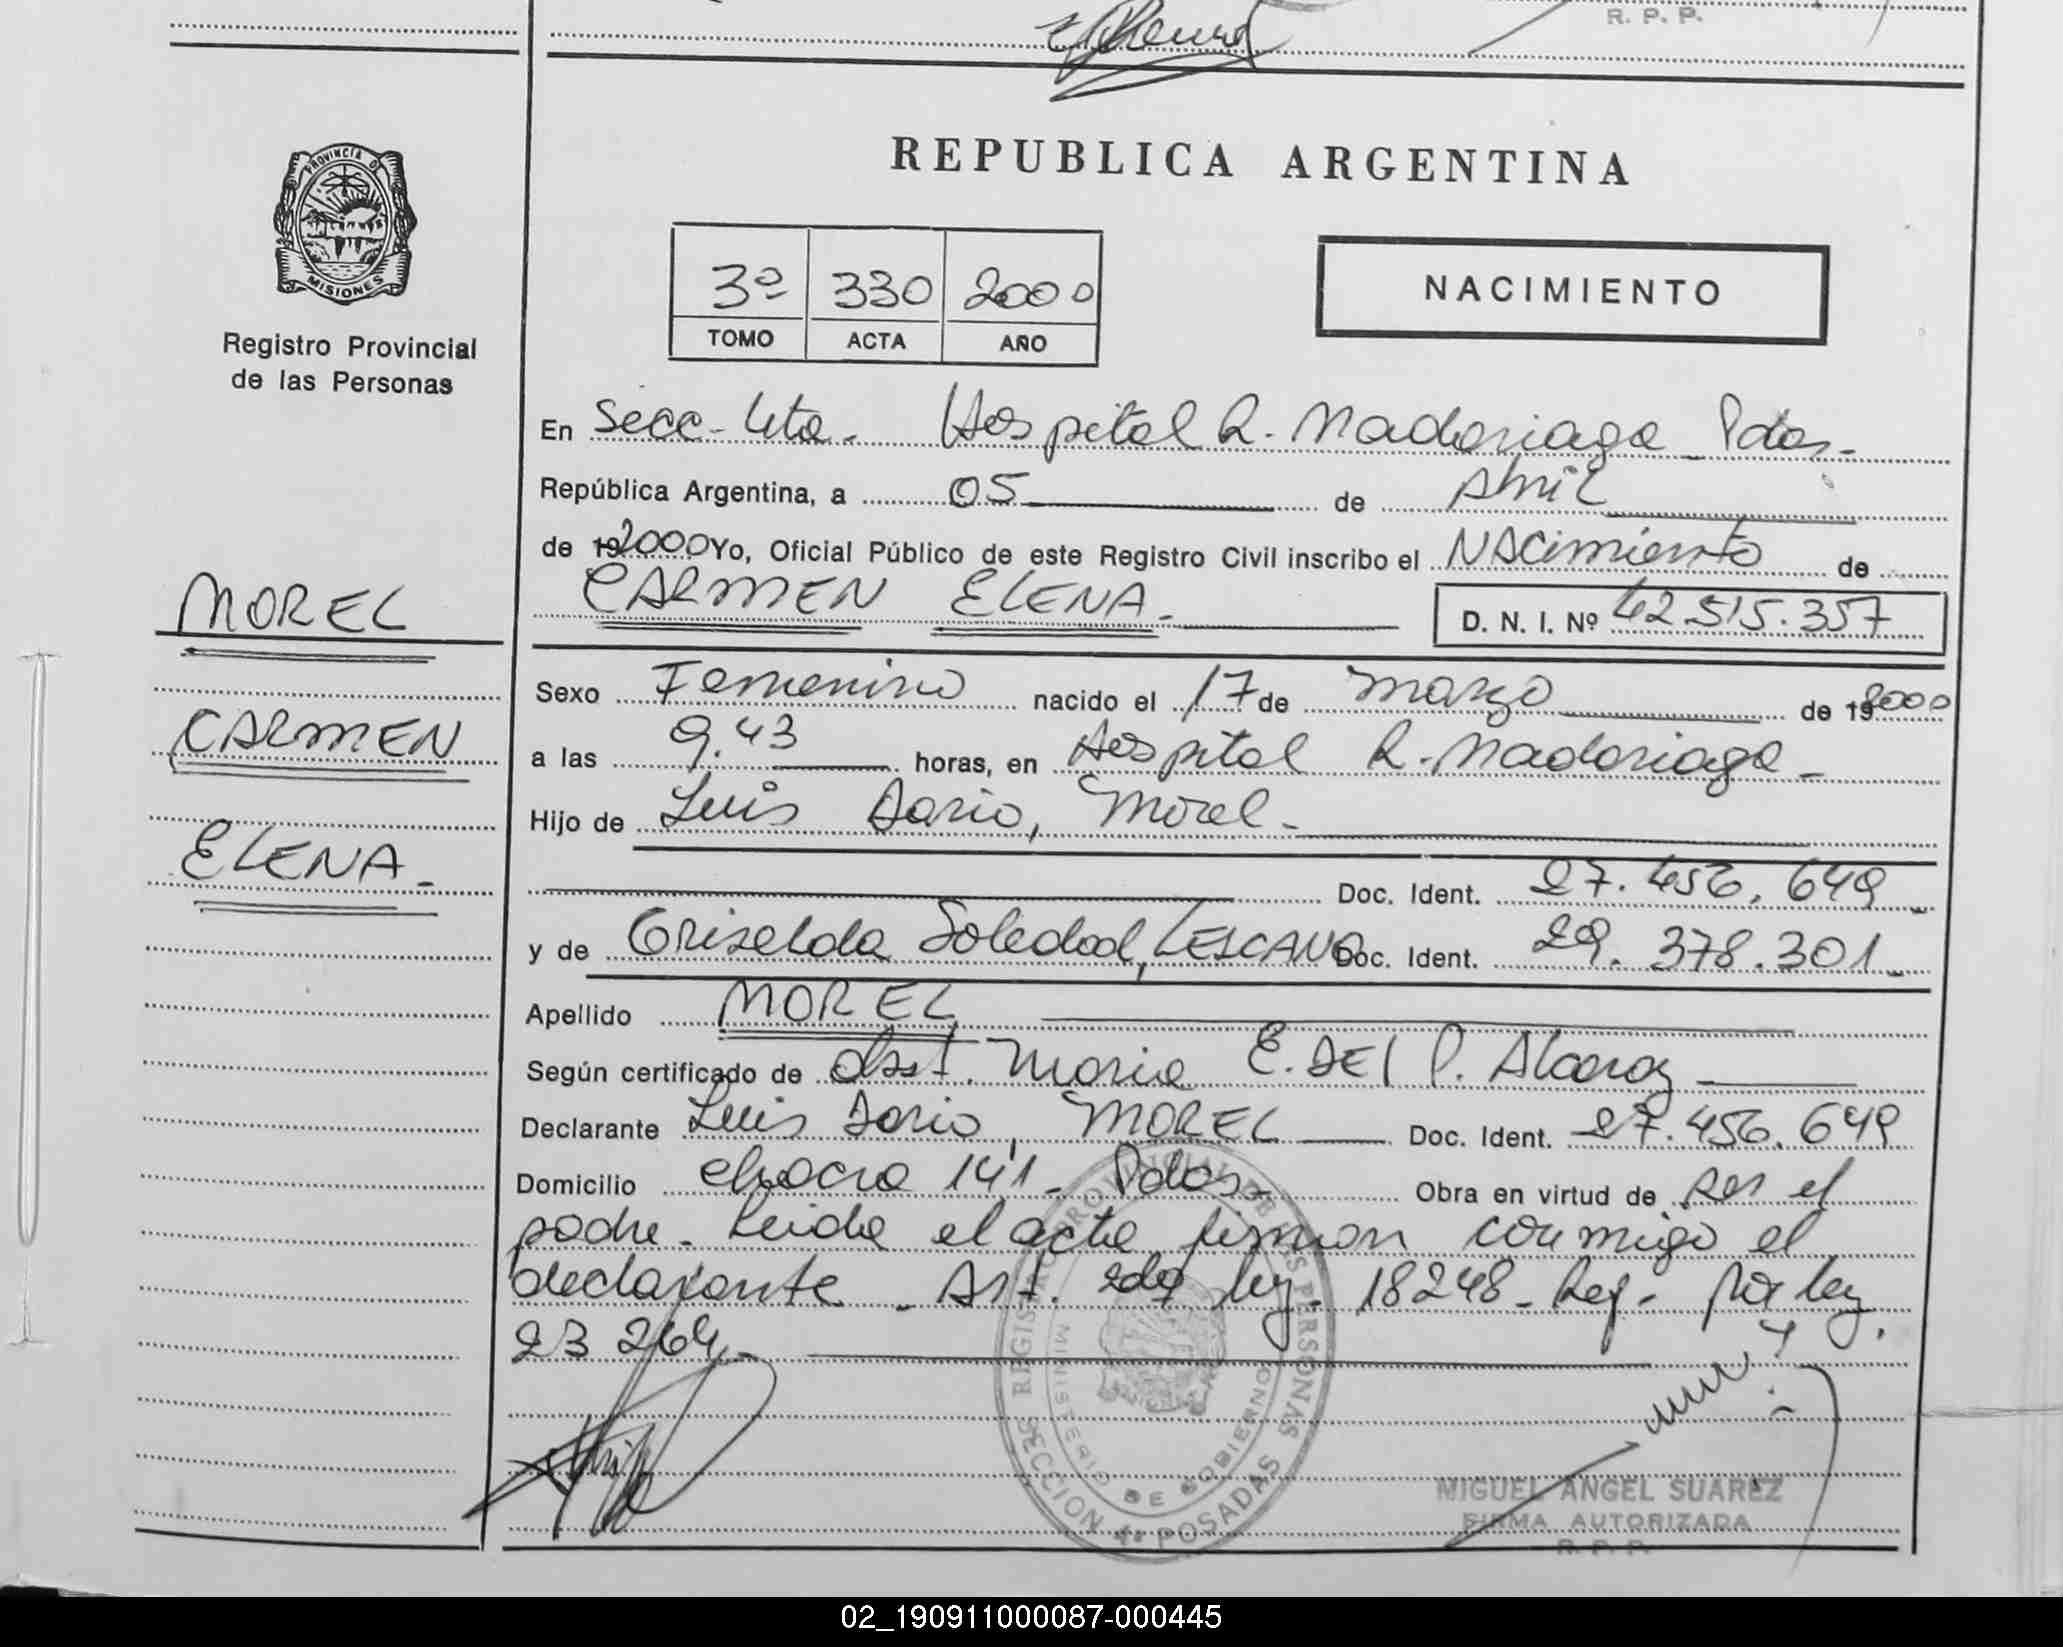 R. P. P.
PROVINCIA D
MISIONES
Registro Provincial
de las Personas
MOREL
CARMEN
ELENA.
REPUBLICA ARGENTINA
3º 330 2000
TOMO ACTA AÑO
NACIMIENTO
En Secc. 4ta. Hospital R. Madariaga Pdas.
República Argentina, a 05 de Abril
de 192000 Yo, Oficial Público de este Registro Civil inscribo el Nacimiento de
CARMEN ELENA. D. N. I. Nº 42.515.357
Sexo Femenino nacido el 17 de marzo de 192000
a las 9.43 horas, en Hospital R. Madariaga
Hijo de Luis Dario, Morel
Doc. Ident. 27.456.649
y de Griselda Soledad, LESCANO Doc. Ident. 29.378.301
Apellido MOREL
Según certificado de Obst. Maria E. DEL P. Alcaraz
Declarante Luis Dario, MOREL Doc. Ident. 27.456.649
Domicilio chacra 141 - Pdas. Obra en virtud de ser el
padre. Leida el acta firman conmigo el
declarante. Art. ley. 18248 - Ref. por ley
23 264
REGISTRO PROVINCIAL DE LAS PERSONAS
MINISTERIO DE GOBIERNO
SECCION 4ª POSADAS
MIGUEL ANGEL SUAREZ
FIRMA AUTORIZADA
R. P. P.
02_190911000087-000445